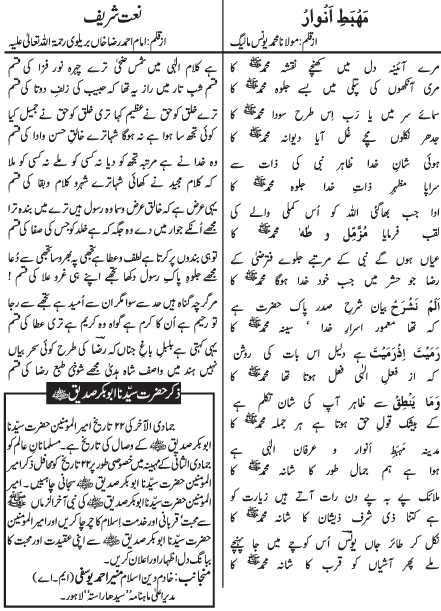 مَہبَطِ اَنْوار
از قلم: مولانا محمد یونس مالیگ
مرے آئینہ دل میں کھنچے نقشہ محمدﷺ کا
مری آنکھوں کی پتلی میں بسے جلوہ محمدﷺ کا
مرے سر میں یا رب اِس طرح سودا محمدﷺ کا
جدھر نکلوں مچے غُل آیا دیوانہ محمدﷺ کا
ہوئی شانِ خدا ظاہر نبی کی ذات سے
سراپا مظہرِ ذاتِ خدا جلوہ محمدﷺ کا
ادا جب بھاگئی اللہ کو اُس کملی والے کی
لقب فرمایا مُزَّمِّل و طٰہٰ محمدﷺ کا
عیاں ہوں گے نبی کے مرتبے جلوے فترضیٰ کے
رضا جو حشر میں جب خود خدا ہوگا محمدﷺ کا
اَلَمْ نَشْرَحْ بیان شرحِ صدر پاک حضرت ہے
کہ تھا معمور اسرارِ خدا ، سینہ محمدﷺ کا
رَمَیْتَ اِذْرَمَیْتَ ہے دلیل اس بات کی روشن
کہ از فعلِ الٰہی فعل ہوتا تھا محمدﷺ کا
وَمَا یَنطِقُ سے ظاہر آپ کی شان تکلم ہے
کے بیشک قول حق ہوتا ہے ہر جملہ محمدﷺ کا
مدینہ مَہبَطِ اَنوار و عرفان الٰہی ہے
ہوا ہے ہم جمال طور کا شانہ محمدﷺ کا
ملائک پے بہ پے دن رات آتے ہیں زیارت کو
ہے کتنا ذی شرف ذیشان کا شانہ محمدﷺ کا
نکل کر طائرِ جاں یونسؔ اُس کوچے میں جا پہنچے
ملے پھر آشیاں کو قرب کا شانہ محمدﷺ کا
نعت شریف
از قلم: امام احمد رضا خاں بریلوی رحمۃ اللہ تعالیٰ علیہ
ہے کلام الٰہی میں شمس ضحیٰ ترے چہرہ نور فزا کی قسم
قسم شبِ تار میں راز یہ تھا کہ حبیب کی زلفِ دوتا کی قسم
ترے خلق کو حق نے عظیم کہا تری خلق کو حق نے جمیل کیا
کوئی تجھ سا ہوا ہے نہ ہوگا شہا ترے خالقِ حسن و ادا کی قسم
وہ خدا نے ہے مرتبہ تجھ کو دیا نہ کسی کو ملے نہ کسی کو ملا
کہ کلام مجید نے کھائی شہا ترے شہر و کلام و بقا کی قسم
یہی عرض ہے خالق عرض و سما وہ رسول ہیں ترے میں بندہ ترا
مجھے اُنکے جوار میں دے وہ جگہ کہ ہے خلد کو جس کی صفا کی قسم
تو ہی بندوں پر کرتا ہے لطف و عطا ہے تجھی پہ بھروسا تجھی سے دُعا
مجھے جلوہ پاک رسول دکھا تجھے اپنے ہی عز و علا کی قسم !
مرگرچہ گناہ ہیں حد سے سوا مگر اُن سے اُمید ہے تجھ سے رجا
تو رحیم ہے اُن کا کرم ہے گواہ وہ کریم ہے تری عطا کی قسم
یہی کہتی ہے بلبلِ باغِ جناں کہ رضاؔ کی طرح کوئی سحر بیاں
نہیں ہند میں واصف شاہ ہدیٰ مجھے شوخی طبع رضا کی قسم
ذکر حضرت سیّدنا ابوبکر صدیق
جمادی الآخر کی ۲۲ تاریخ امیر المؤمنین حضرت سیّدنا
ابوبکر صدیق کے وصال کی تاریخ ہے۔ مسلمانانِ عالم کو
جمادی الثانی کے مہینہ میں خصوصی طور پر ۲۲ تاریخ کو محافل ذکر امیر
المؤمنین حضرت سیّدنا ابوبکر صدیق سجانی چاہئیں۔ امیر
المؤمنین حضرت سیّدنا ابوبکر صدیق کی نبی آخر الزماں ﷺ
سے محبت قربانی اور خدمت اسلام کا چرچا کریں اور امیر المؤمنین
حضرت سیّدنا ابوبکر صدیق سے اپنی عقیدت اور محبت کا
ببانگ دہل اظہار و اعلان کریں۔
منجانب: خادم دین اسلام منیر احمد یوسفی (ایم۔اے)
مدیر اعلیٰ ماہنامہ ”سیدھا راستہ“ لاہور۔